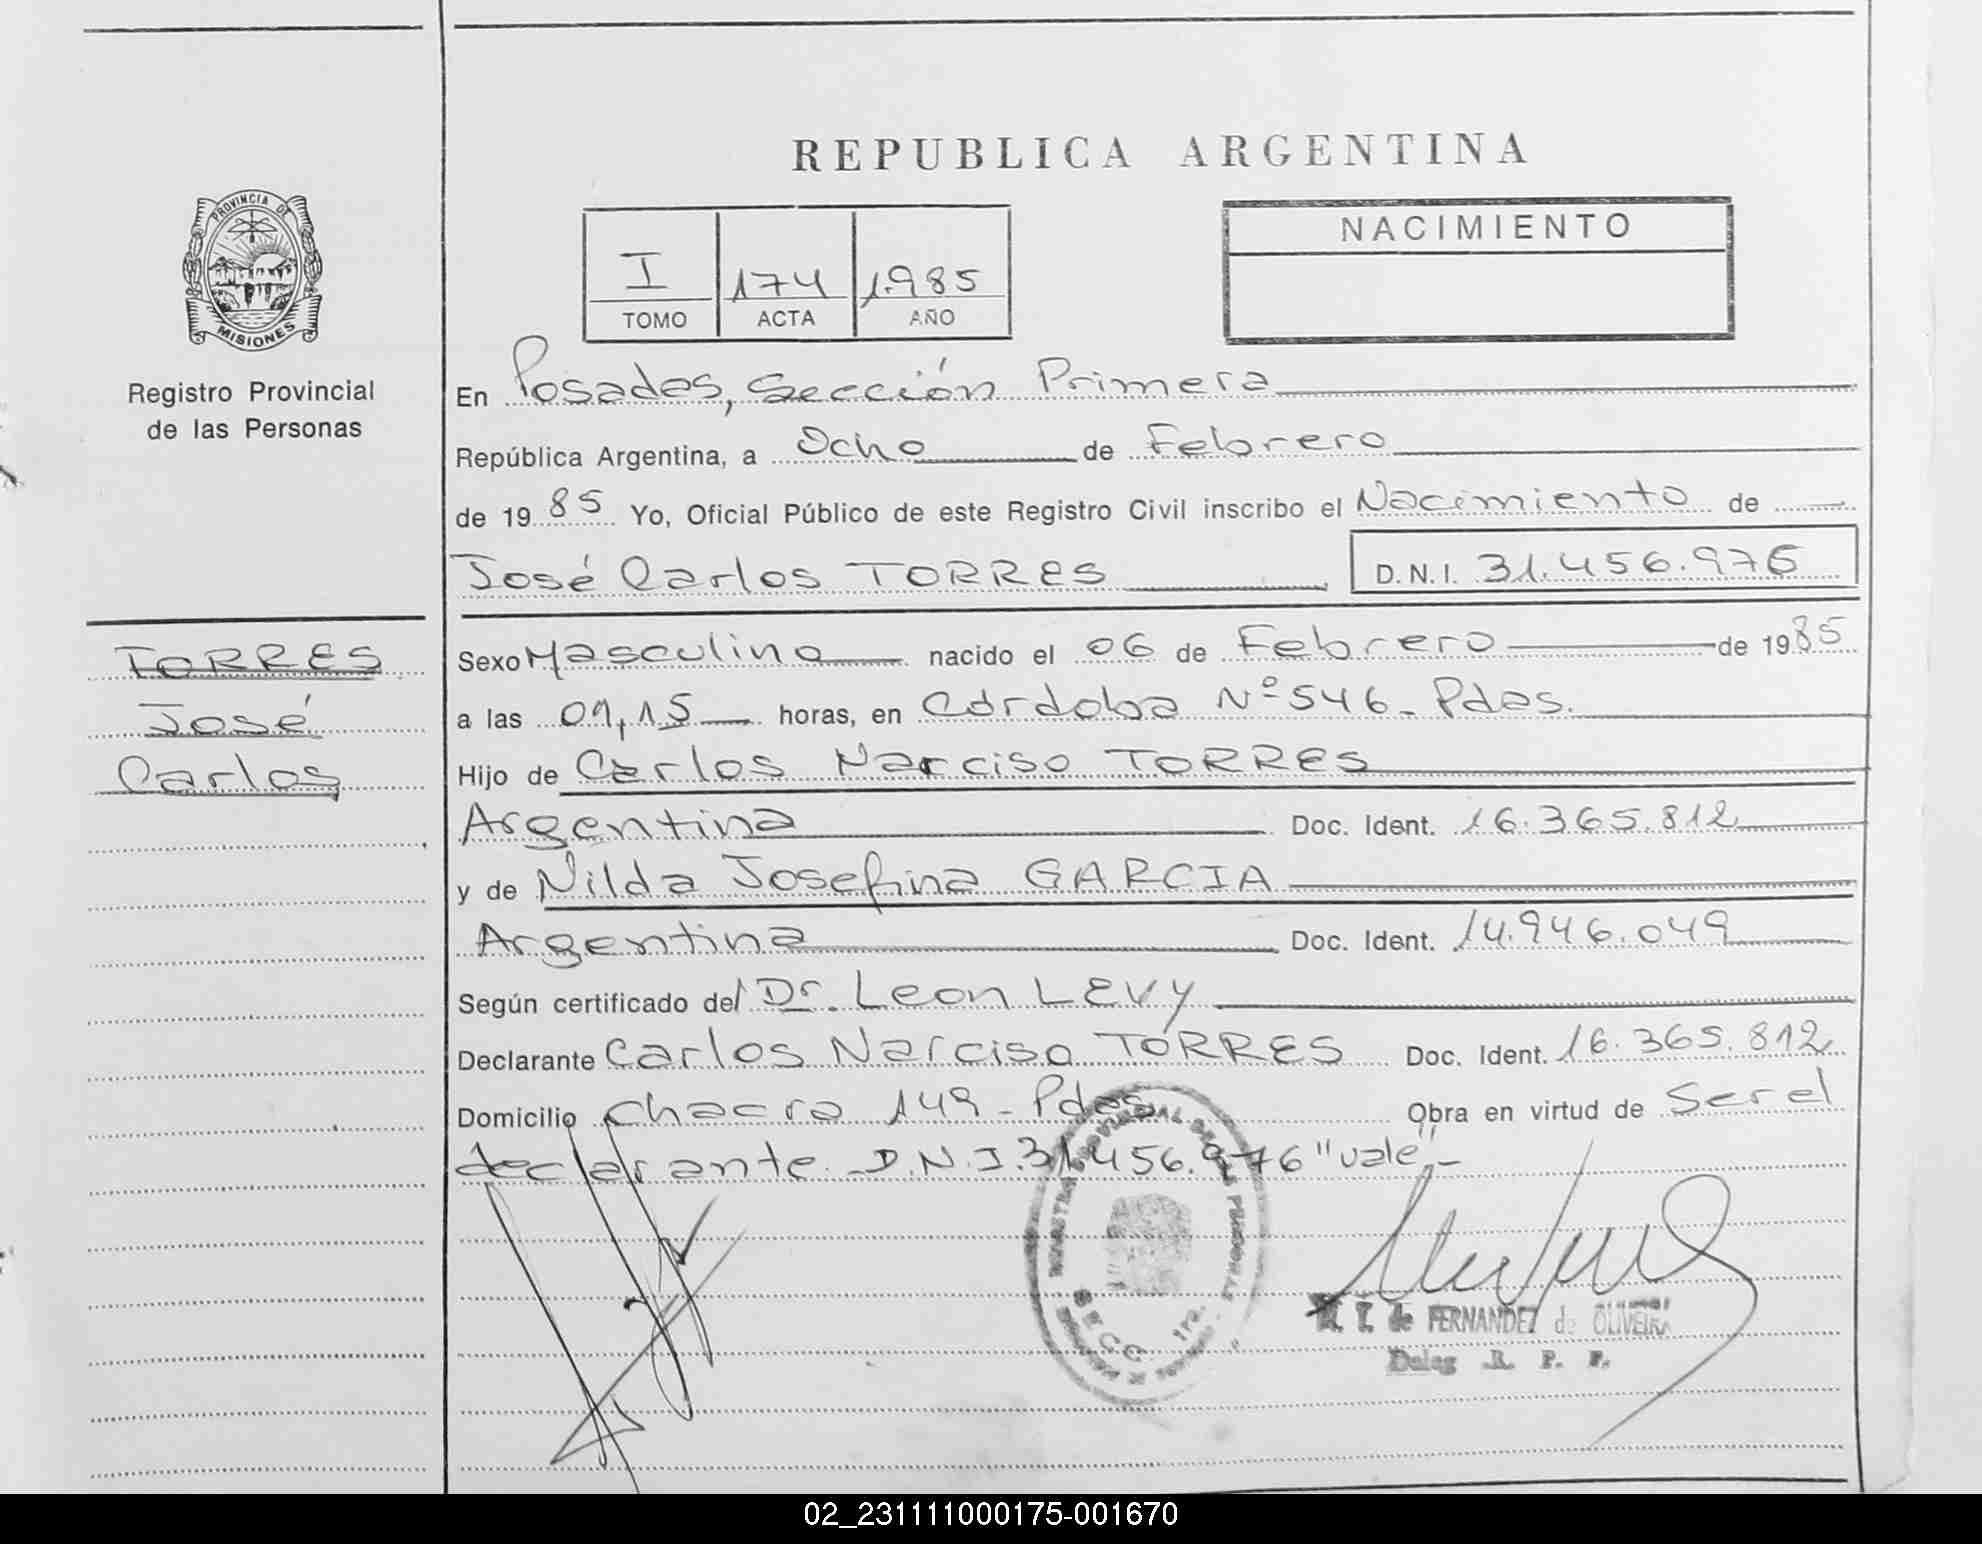 REPUBLICA ARGENTINA
PROVINCIA DE
MISIONES
Registro Provincial
de las Personas
I 174 1985
TOMO ACTA AÑO
NACIMIENTO
En Posadas, Sección Primera
República Argentina, a Ocho de Febrero
de 1985 Yo, Oficial Público de este Registro Civil inscribo el Nacimiento de
José Carlos TORRES D.N.I. 31.456.976
TORRES
José
Carlos
Sexo Masculino nacido el 06 de Febrero de 1985
a las 01,15 horas, en Córdoba Nº 546 - Pdas.
Hijo de Carlos Narciso TORRES
Argentina Doc. Ident. 16.365.812
y de Nilda Josefina GARCIA
Argentina Doc. Ident. 14.946.049
Según certificado del Dr. Leon LEVY
Declarante Carlos Narciso TORRES Doc. Ident. 16.365.812
Domicilio Chacra 149 - Pdas Obra en virtud de Ser el
declarante. D.N.I. 31.456.976 "vale" -
SECC 1ra.
de FERNANDEZ de OLIVEIRA
Deleg R. P. P.
02_231111000175-001670